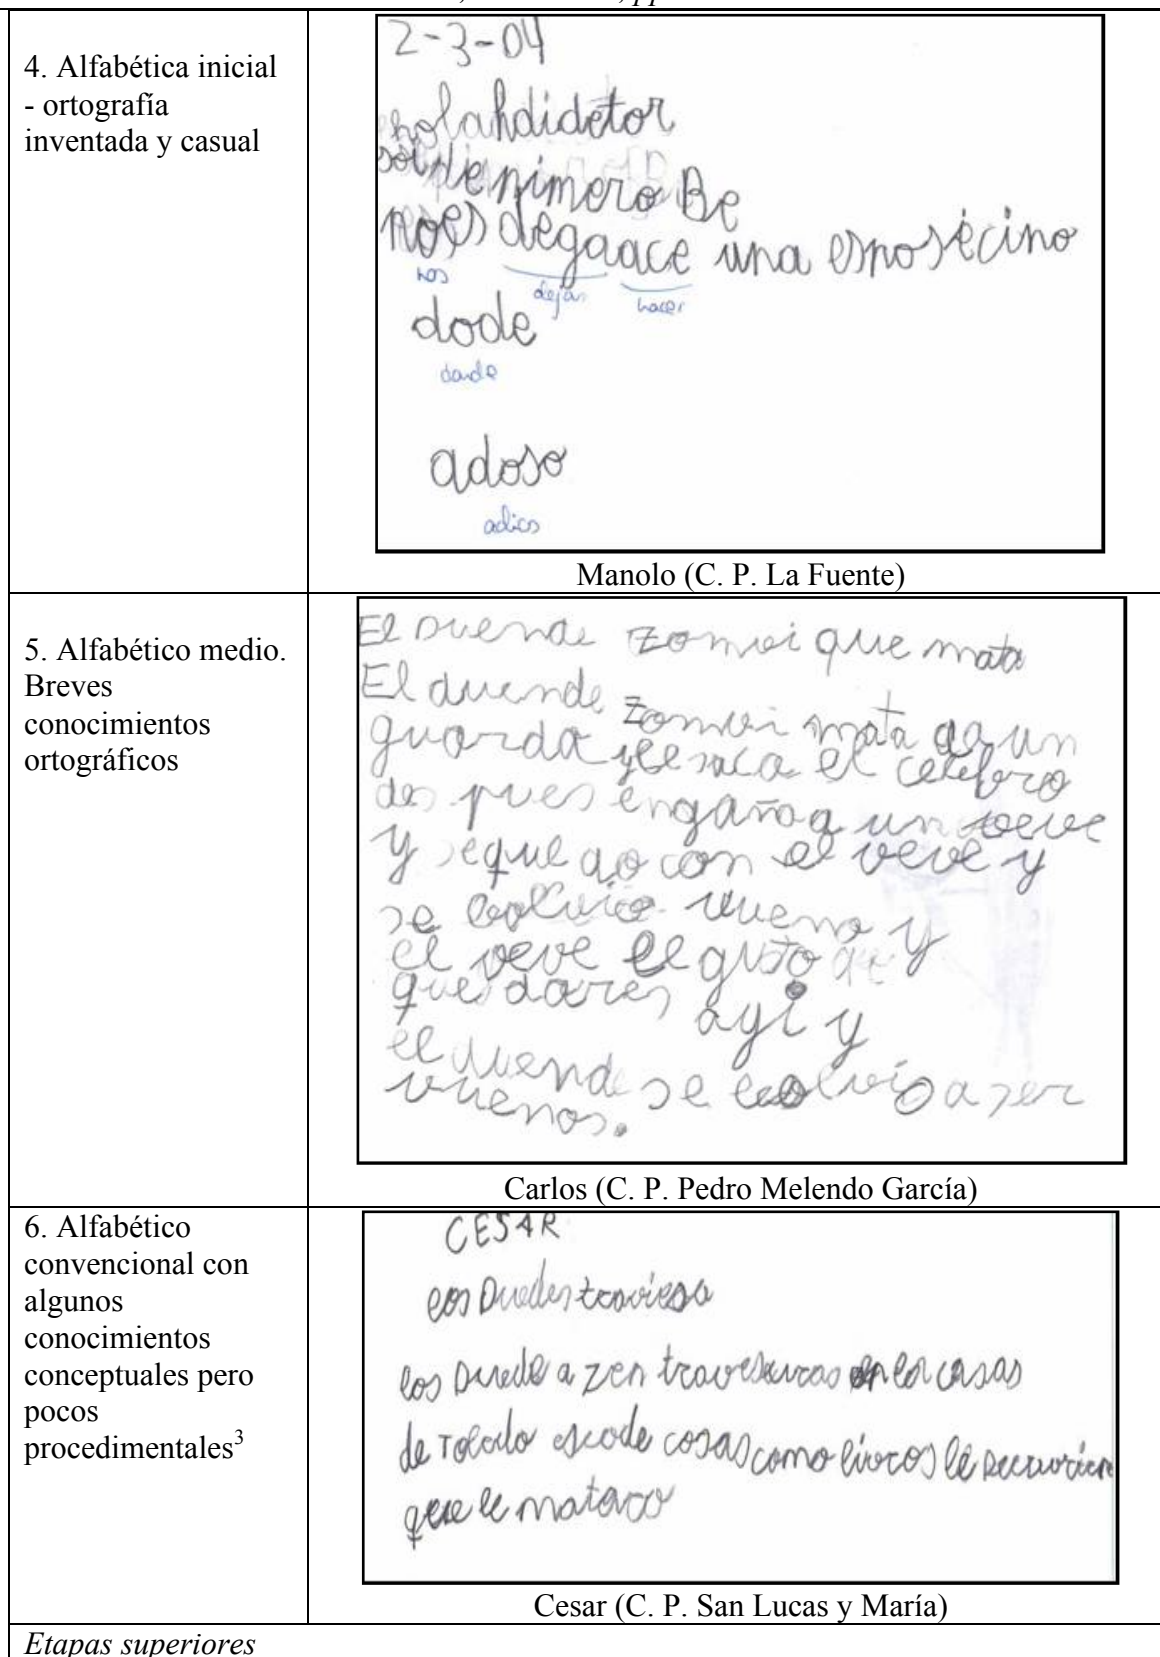 4. Alfabética inicial
- ortografía
inventada y casual
2-3-04
holahdidetor
soide nimero Be
noes degaace una esposicino
nos dejas hacer
dode
donde
adoso
adios
Manolo (C. P. La Fuente)
5. Alfabético medio.
Breves
conocimientos
ortográficos
El Duende zomvi que mata
El duende zomvi mata aa un
guarda y le saca el celebro
des pues engaña a un veve
y sequedo con el veve y
se volvio vueno y
el veve le gusto
quedares ayi y
el duende se volvio a ser
vuenos.
Carlos (C. P. Pedro Melendo García)
6. Alfabético
convencional con
algunos
conocimientos
conceptuales pero
pocos
procedimentales3
CESAR
los Duedes
los Duede a zen travesuras en las casas
de Toledo escode cosas como livros le
que le mataro
Cesar (C. P. San Lucas y María)
Etapas superiores